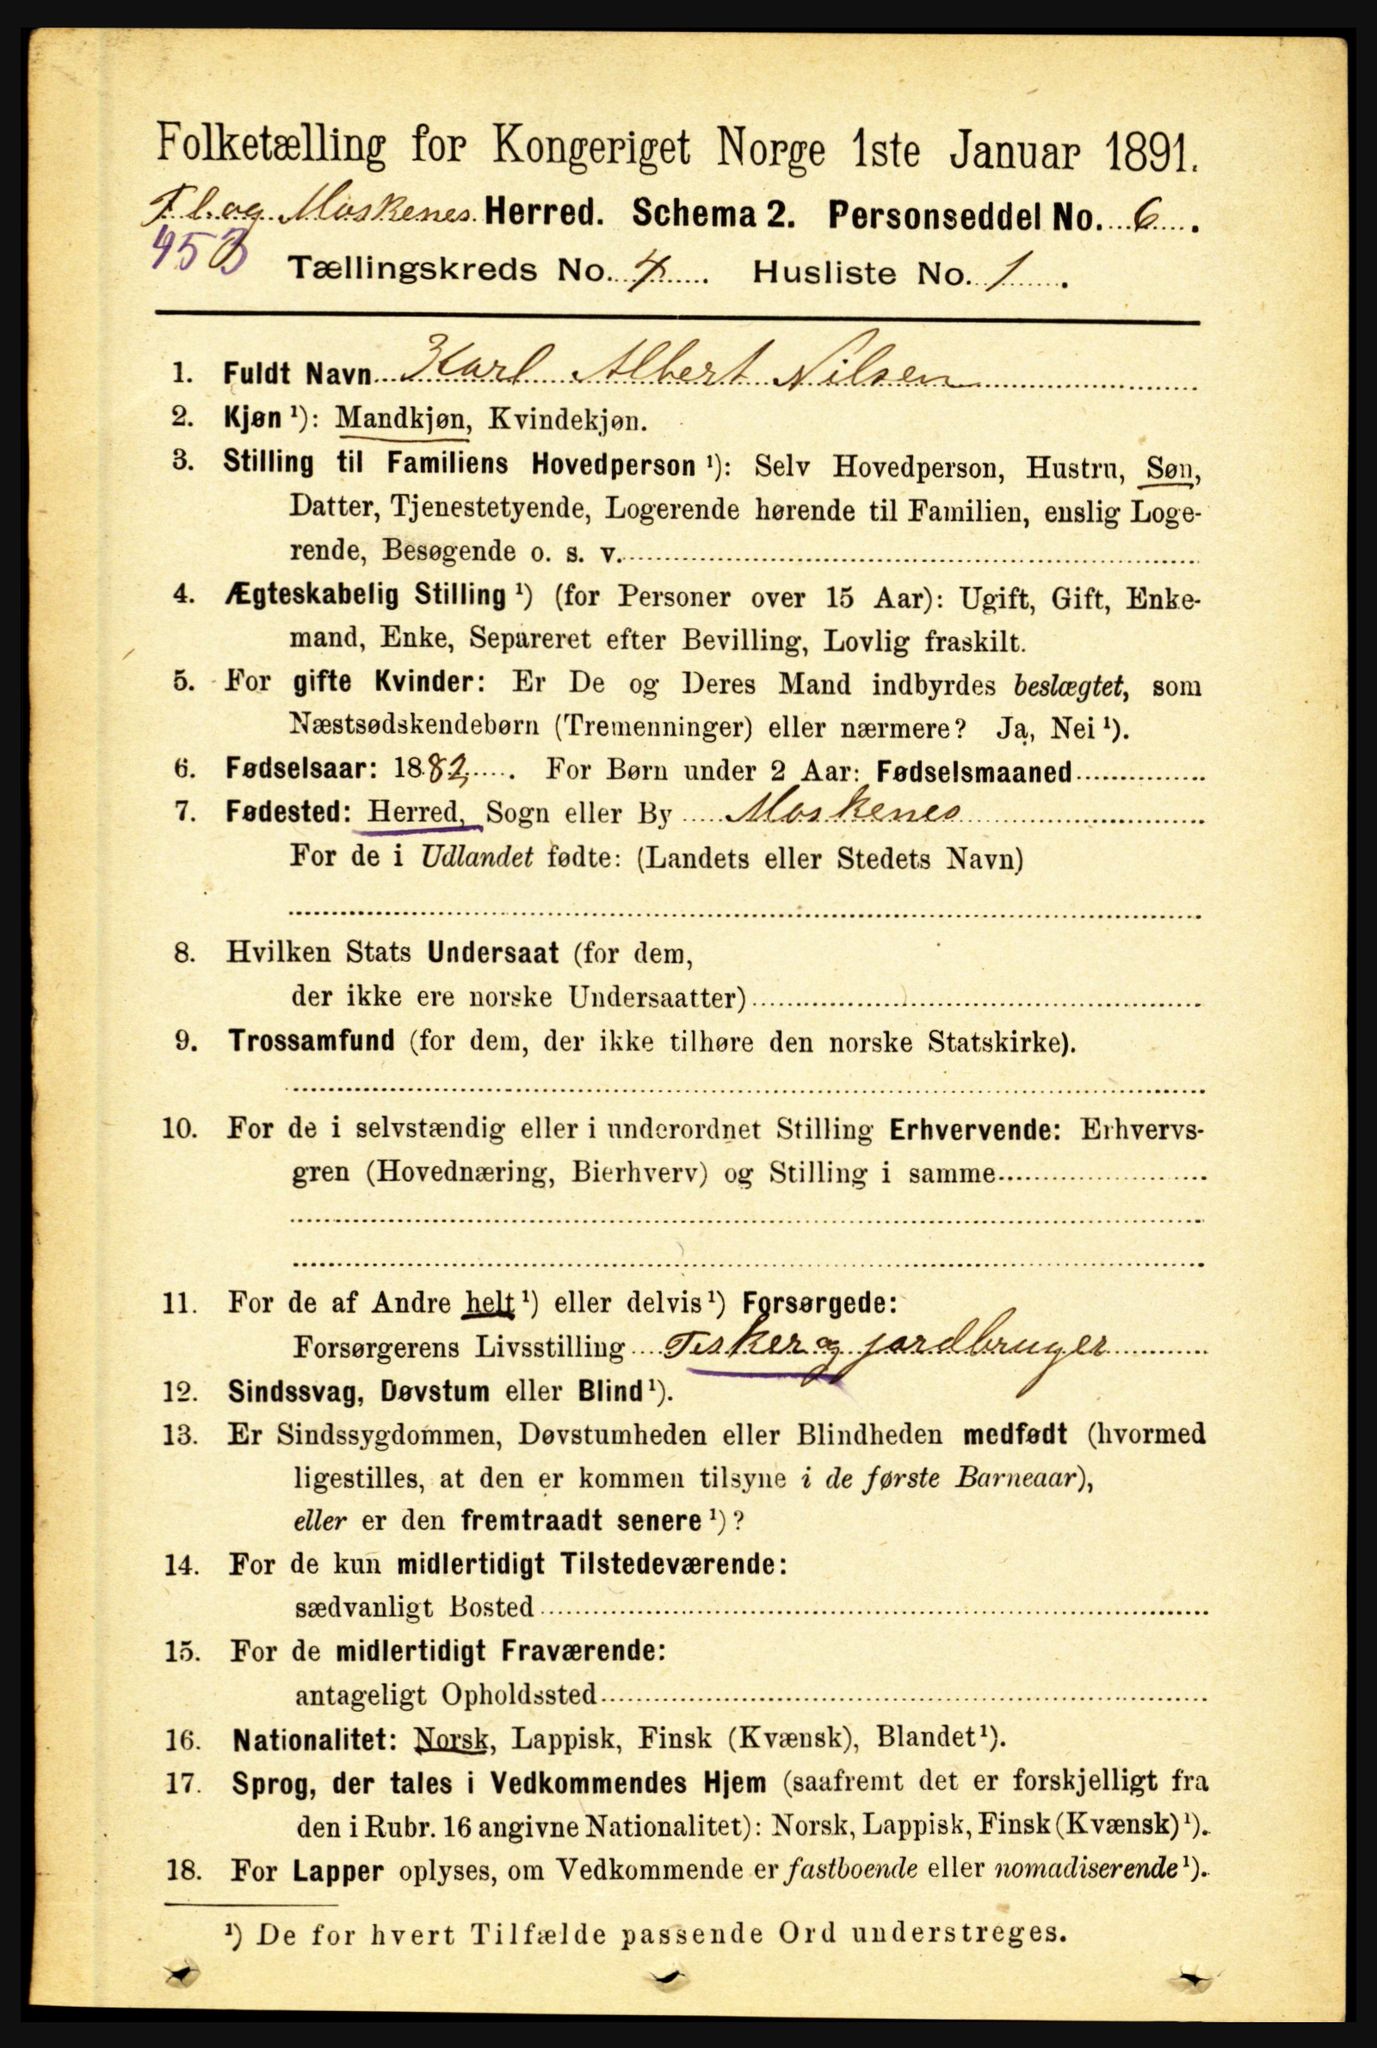 Folketælling for Kongeriget Norge 1ste Januar 1891.
Fl. og Moskenes Herred. Schema 2. Personseddel No. 6.
453
Tællingskreds No. 4. Husliste No. 1.
1. Fuldt Navn Karl Albert Nilsen
2. Kjøn ¹): Mandkjøn, Kvindekjøn.
3. Stilling til Familiens Hovedperson ¹): Selv Hovedperson, Hustru, Søn,
Datter, Tjenestetyende, Logerende hørende til Familien, enslig Loge-
rende, Besøgende o. s. v.
4. Ægteskabelig Stilling ¹) (for Personer over 15 Aar): Ugift, Gift, Enke-
mand, Enke, Separeret efter Bevilling, Lovlig fraskilt.
5. For gifte Kvinder: Er De og Deres Mand indbyrdes beslægtet, som
Næstsødskendebørn (Tremenninger) eller nærmere? Ja, Nei ¹).
6. Fødselsaar: 1882. For Børn under 2 Aar: Fødselsmaaned
7. Fødested: Herred, Sogn eller By Moskenes
For de i Udlandet fødte: (Landets eller Stedets Navn)
8. Hvilken Stats Undersaat (for dem,
der ikke ere norske Undersaatter)
9. Trossamfund (for dem, der ikke tilhøre den norske Statskirke).
10. For de i selvstændig eller i underordnet Stilling Erhvervende: Erhvervs-
gren (Hovednæring, Bierhverv) og Stilling i samme
11. For de af Andre helt ¹) eller delvis ¹) Forsørgede:
Forsørgerens Livsstilling Fisker og jordbruger
12. Sindssvag, Døvstum eller Blind ¹).
13. Er Sindssygdommen, Døvstumheden eller Blindheden medfødt (hvormed
ligestilles, at den er kommen tilsyne i de første Barneaar),
eller er den fremtraadt senere ¹)?
14. For de kun midlertidigt Tilstedeværende:
sædvanligt Bosted
15. For de midlertidigt Fraværende:
antageligt Opholdssted
16. Nationalitet: Norsk, Lappisk, Finsk (Kvænsk), Blandet ¹).
17. Sprog, der tales i Vedkommendes Hjem (saafremt det er forskjelligt fra
den i Rubr. 16 angivne Nationalitet): Norsk, Lappisk, Finsk (Kvænsk) ¹).
18. For Lapper oplyses, om Vedkommende er fastboende eller nomadiserende ¹).
¹) De for hvert Tilfælde passende Ord understreges.